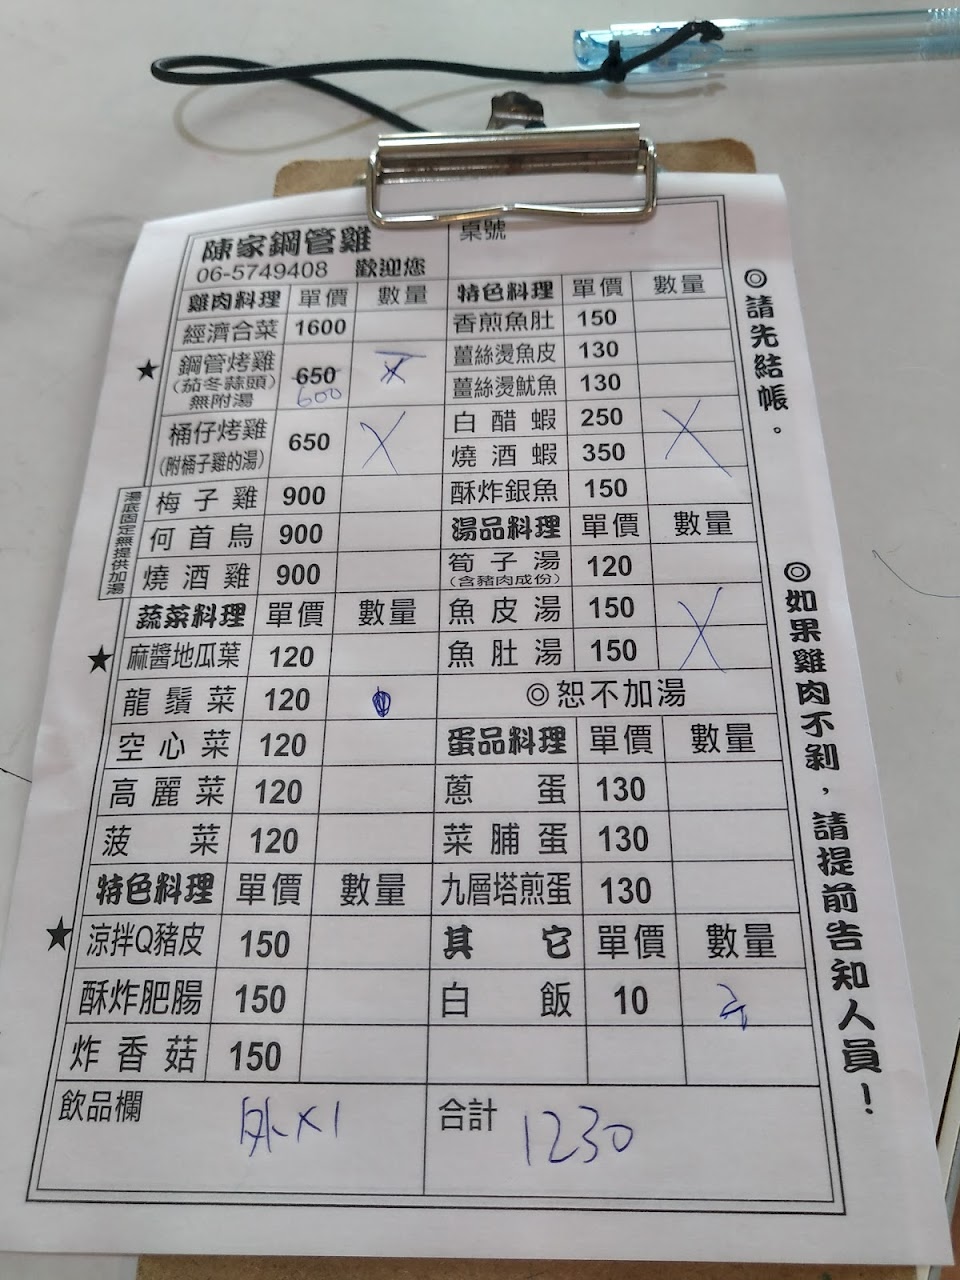 陳家鋼管雞
06-5749408 歡迎您
桌號
雞肉料理 單價 數量
經濟合菜 1600
★ 鋼管烤雞 650
(茄冬蒜頭) 600
無附湯
桶仔烤雞 650 X
(附桶子雞的湯)
湯底固定無提供加湯
梅子雞 900
何首烏 900
燒酒雞 900
蔬菜料理 單價 數量
★ 麻醬地瓜葉 120
龍鬚菜 120
空心菜 120
高麗菜 120
菠菜 120
特色料理 單價 數量
★ 涼拌Q豬皮 150
酥炸肥腸 150
炸香菇 150
飲品欄 外X1
特色料理 單價 數量
香煎魚肚 150
薑絲燙魚皮 130
薑絲燙魷魚 130
白醋蝦 250 X
燒酒蝦 350
酥炸銀魚 150
湯品料理 單價 數量
筍子湯 120
(含豬肉成份)
魚皮湯 150 X
魚肚湯 150
◎恕不加湯
蛋品料理 單價 數量
蔥蛋 130
菜脯蛋 130
九層塔煎蛋 130
其它 單價 數量
白飯 10
合計 1230
◎請先結帳。
◎如果雞肉不剝，請提前告知人員！